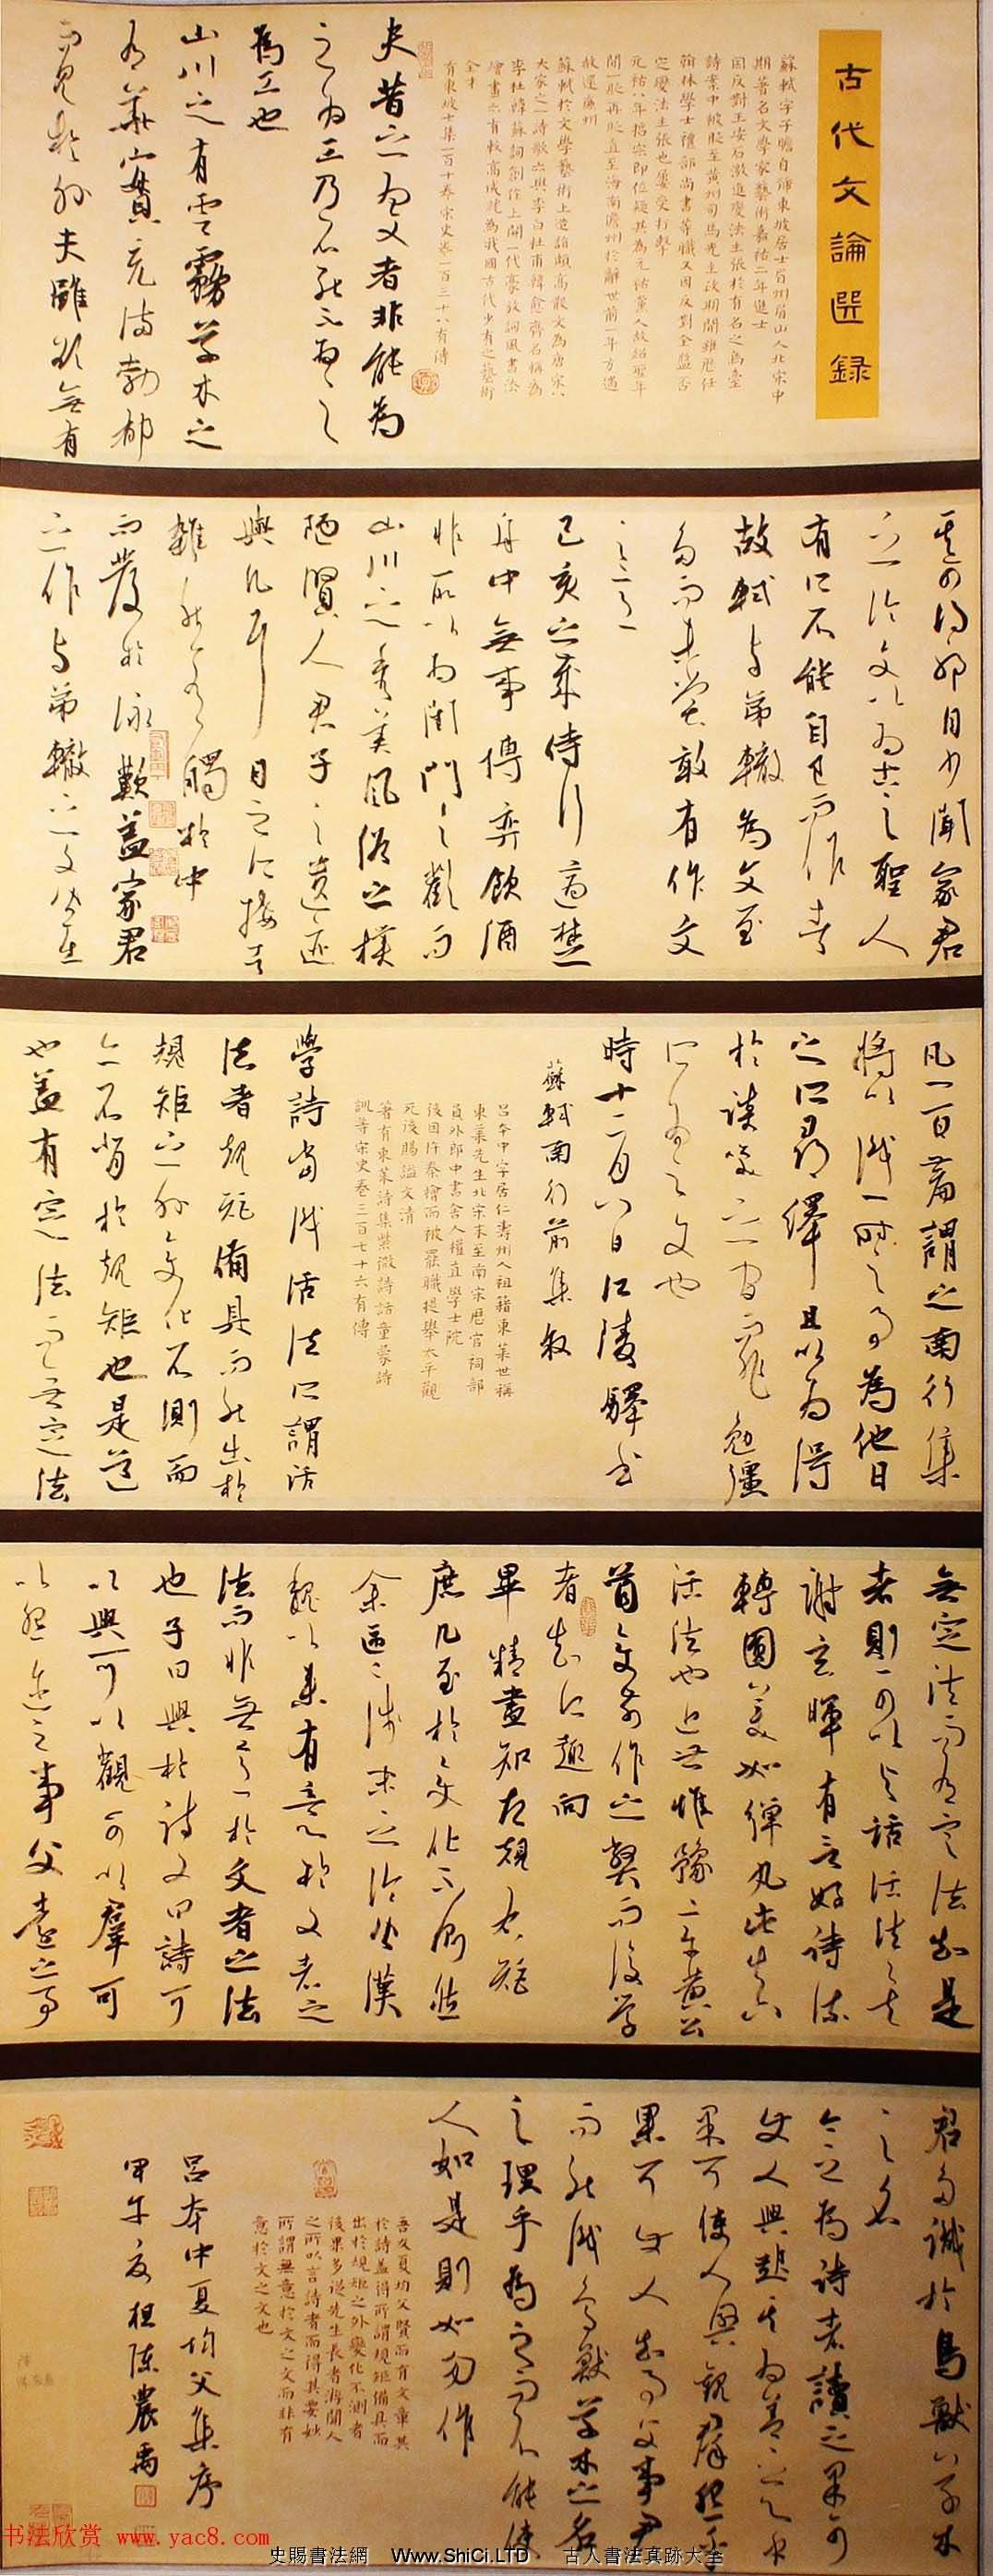 古代文論選録
蘇軾字子瞻自號東坡居士眉州眉山人北宋中
期著名文學家藝術嘉祐二年進士
因反對王安石激進變法主張於有名之烏臺
詩案中被貶至黃州司馬光主政期間雖歷任
翰林學士禮部尚書等職又因反對全盤否
定變法主張也屢受打擊
元祐八年哲宗即位疑其為元祐黨人故紹聖年
間一貶再貶直至海南儋州於辭世前一年方遇
赦還廉州
蘇軾於文學藝術上造詣頗高散文為唐宋八
大家之一詩歌亦與李白杜甫韓愈齊名稱為
李杜韓蘇詞創作上開一代豪放詞風書法
繪畫亦有較高成就為我國古代少有之藝術
全才
有東坡七集一百十卷宋史卷三百三十八有傳
夫昔之為文者非能為
之為工乃不能不為之
為工也
山川之有雲霧草木之
有華實充滿勃郁
而見於外夫雖欲無有
其可得耶自少聞家君
之論文以為古之聖人
有所不能自已而作者
故軾與弟轍為文至
多而未嘗敢有作文
之意
己亥之歲侍行適楚
舟中無事博弈飲酒
非所以為閨門之歡而
山川之秀美風俗之樸
陋賢人君子之遺迹
與凡耳目之所接者
雜然有觸於中
而發於詠歎蓋家君
之作與弟轍之文皆在
凡一百篇謂之南行集
將以識一時之事為他日
之所尋繹且以為得
於談笑之間而非勉彊
所為之文也
時十二月八日江陵驛書
蘇軾南行前集敘
呂本中字居仁壽州人祖籍東萊世稱
東萊先生北宋末至南宋歷官祠部
員外郎中書舍人權直學士院
後因忤秦檜而被罷職提舉太平觀
死後賜謚文清
著有東萊詩集紫微詩話童蒙詩
訓等宋史卷三百七十六有傳
學詩當識活法所謂活
法者規矩備具而能出於
規矩之外變化不測而
亦不背於規矩也是道
也蓋有定法而無定法
無定法而有定法知是
者則可以與語活法矣
謝玄暉有言好詩流
轉圜美如彈丸此真
活法也近世惟豫章黃公
首變前作之弊而後學
者知所趣向
畢精盡知左規右矩
庶幾至於變化不測然
余區區淺末之論皆漢
魏以來有意於文者之
法而非無意於文者之法
也子曰興於詩又曰詩可
以興可以觀可以群可
以怨邇之事父遠之事
君多識於鳥獸草木
之名
今之為詩者讀之果可
使人興起其為善之心乎
果可使人興觀群怨乎
果可使人知事父事君
而能識鳥獸草木之名
之理乎為之而不能使
人如是則如勿作
吾友夏均父賢而有文章其
於詩蓋得所謂規矩備具而
出於規矩之外變化不測者
後果多從先生長者游聞人
之所以言詩者而得其要妙
所謂無意於文之文而非有
意於文之文也
呂本中夏均父集序
甲午夏桓陳農禹
书法欣赏 www.yac8.com
史賜書法網 Www.ShiCi.LTD 古人書法真跡大全